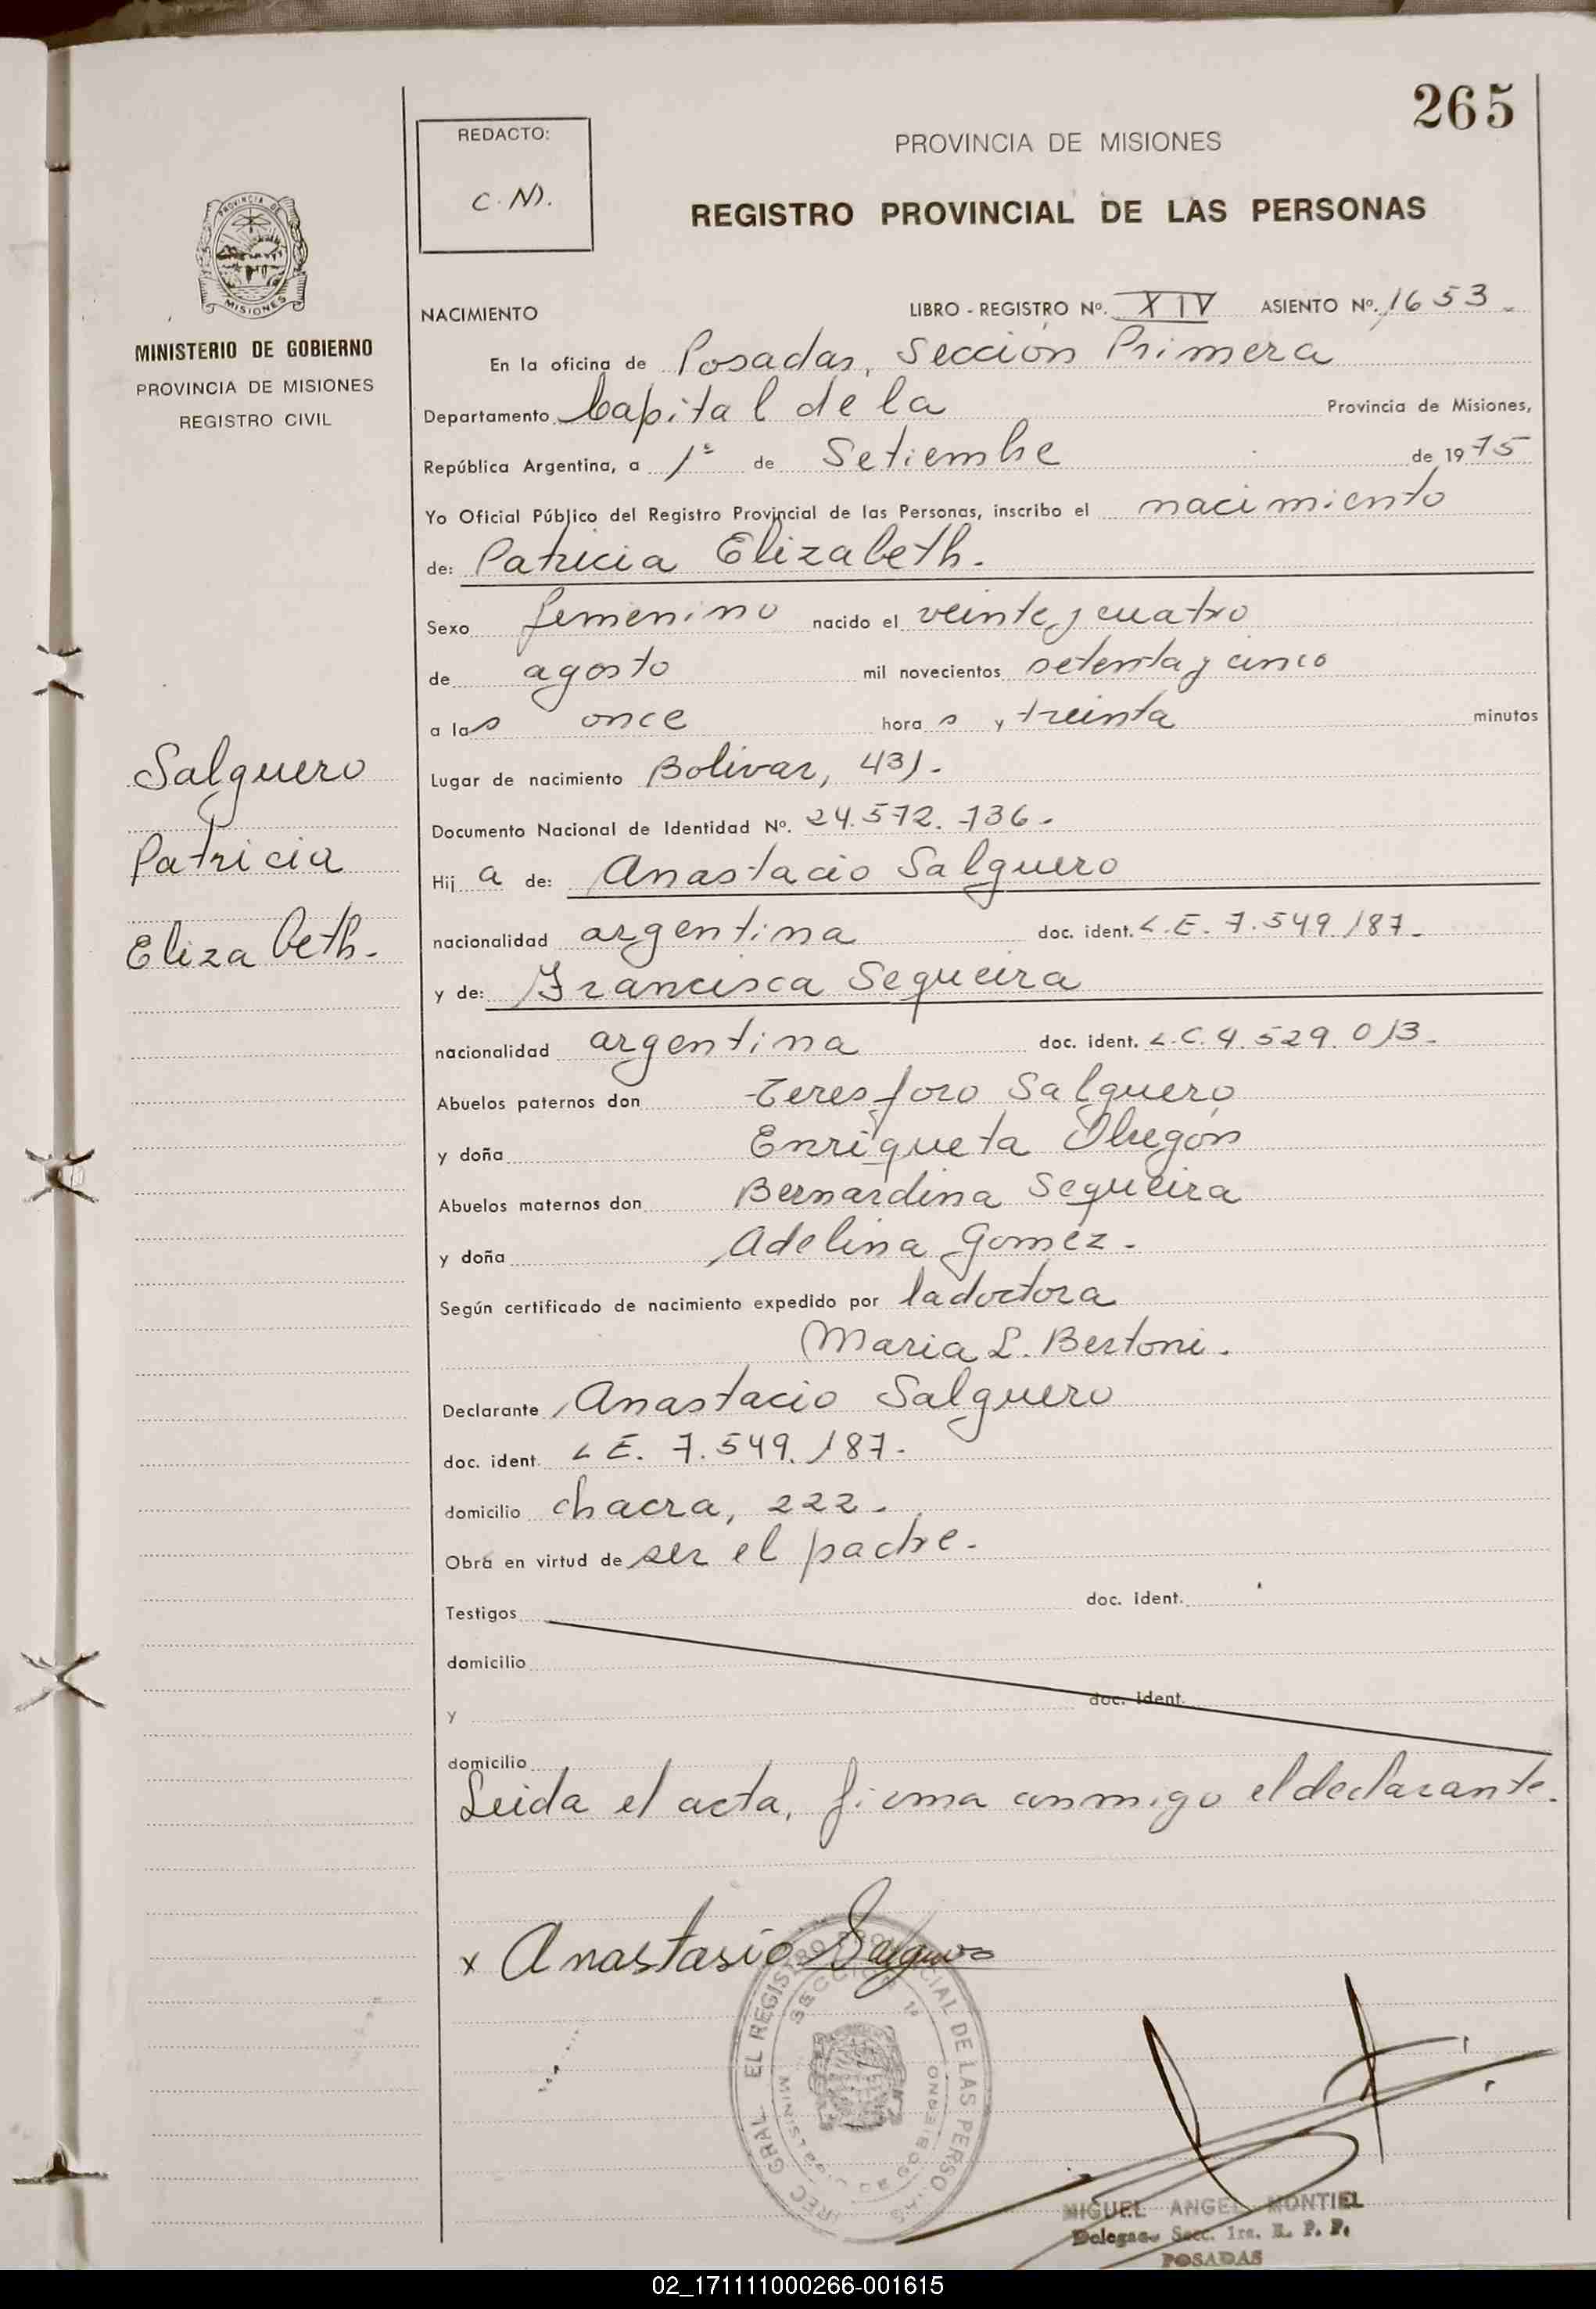 265
REDACTO:
C. N.
PROVINCIA DE MISIONES
REGISTRO PROVINCIAL DE LAS PERSONAS
PROVINCIA DE
MISIONES
MINISTERIO DE GOBIERNO
PROVINCIA DE MISIONES
REGISTRO CIVIL
NACIMIENTO LIBRO - REGISTRO Nº. XIV ASIENTO Nº. 1653
En la oficina de Posadas, Sección Primera
Departamento Capital de la Provincia de Misiones,
República Argentina, a 1º de Setiembre de 1975
Yo Oficial Público del Registro Provincial de las Personas, inscribo el nacimiento
de: Patricia Elizabeth.
Sexo femenino nacido el veinte y cuatro
de agosto mil novecientos setenta y cinco
a las once horas y treinta minutos
Lugar de nacimiento Bolivar, 431.
Documento Nacional de Identidad Nº. 24.572.736.
Hija de: Anastacio Salguero
nacionalidad argentina doc. ident. L.E. 7.549.187.
y de: Francisca Sequeira
nacionalidad argentina doc. ident. L.C. 4.529.013.
Abuelos paternos don Teresforo Salguero
y doña Enriqueta Obregón
Abuelos maternos don Bernardina Sequeira
y doña Adelina Gomez.
Según certificado de nacimiento expedido por la doctora
Maria L. Bertoni.
Declarante Anastacio Salguero
doc. ident. L E. 7.549.187.
domicilio chacra, 222.
Obra en virtud de ser el padre.
Testigos doc. ident.
domicilio
y doc. ident.
domicilio
Leida el acta, firma conmigo el declarante.
Salguero
Patricia
Elizabeth.
x Anastasio Salguero
EL REGISTRO PROVINCIAL DE LAS PERSONAS
SECCION 1ª
MINISTERIO DE GOBIERNO
MIGUEL ANGEL MONTIEL
Delegado Secc. 1ra. R. P. P.
POSADAS
02_171111000266-001615